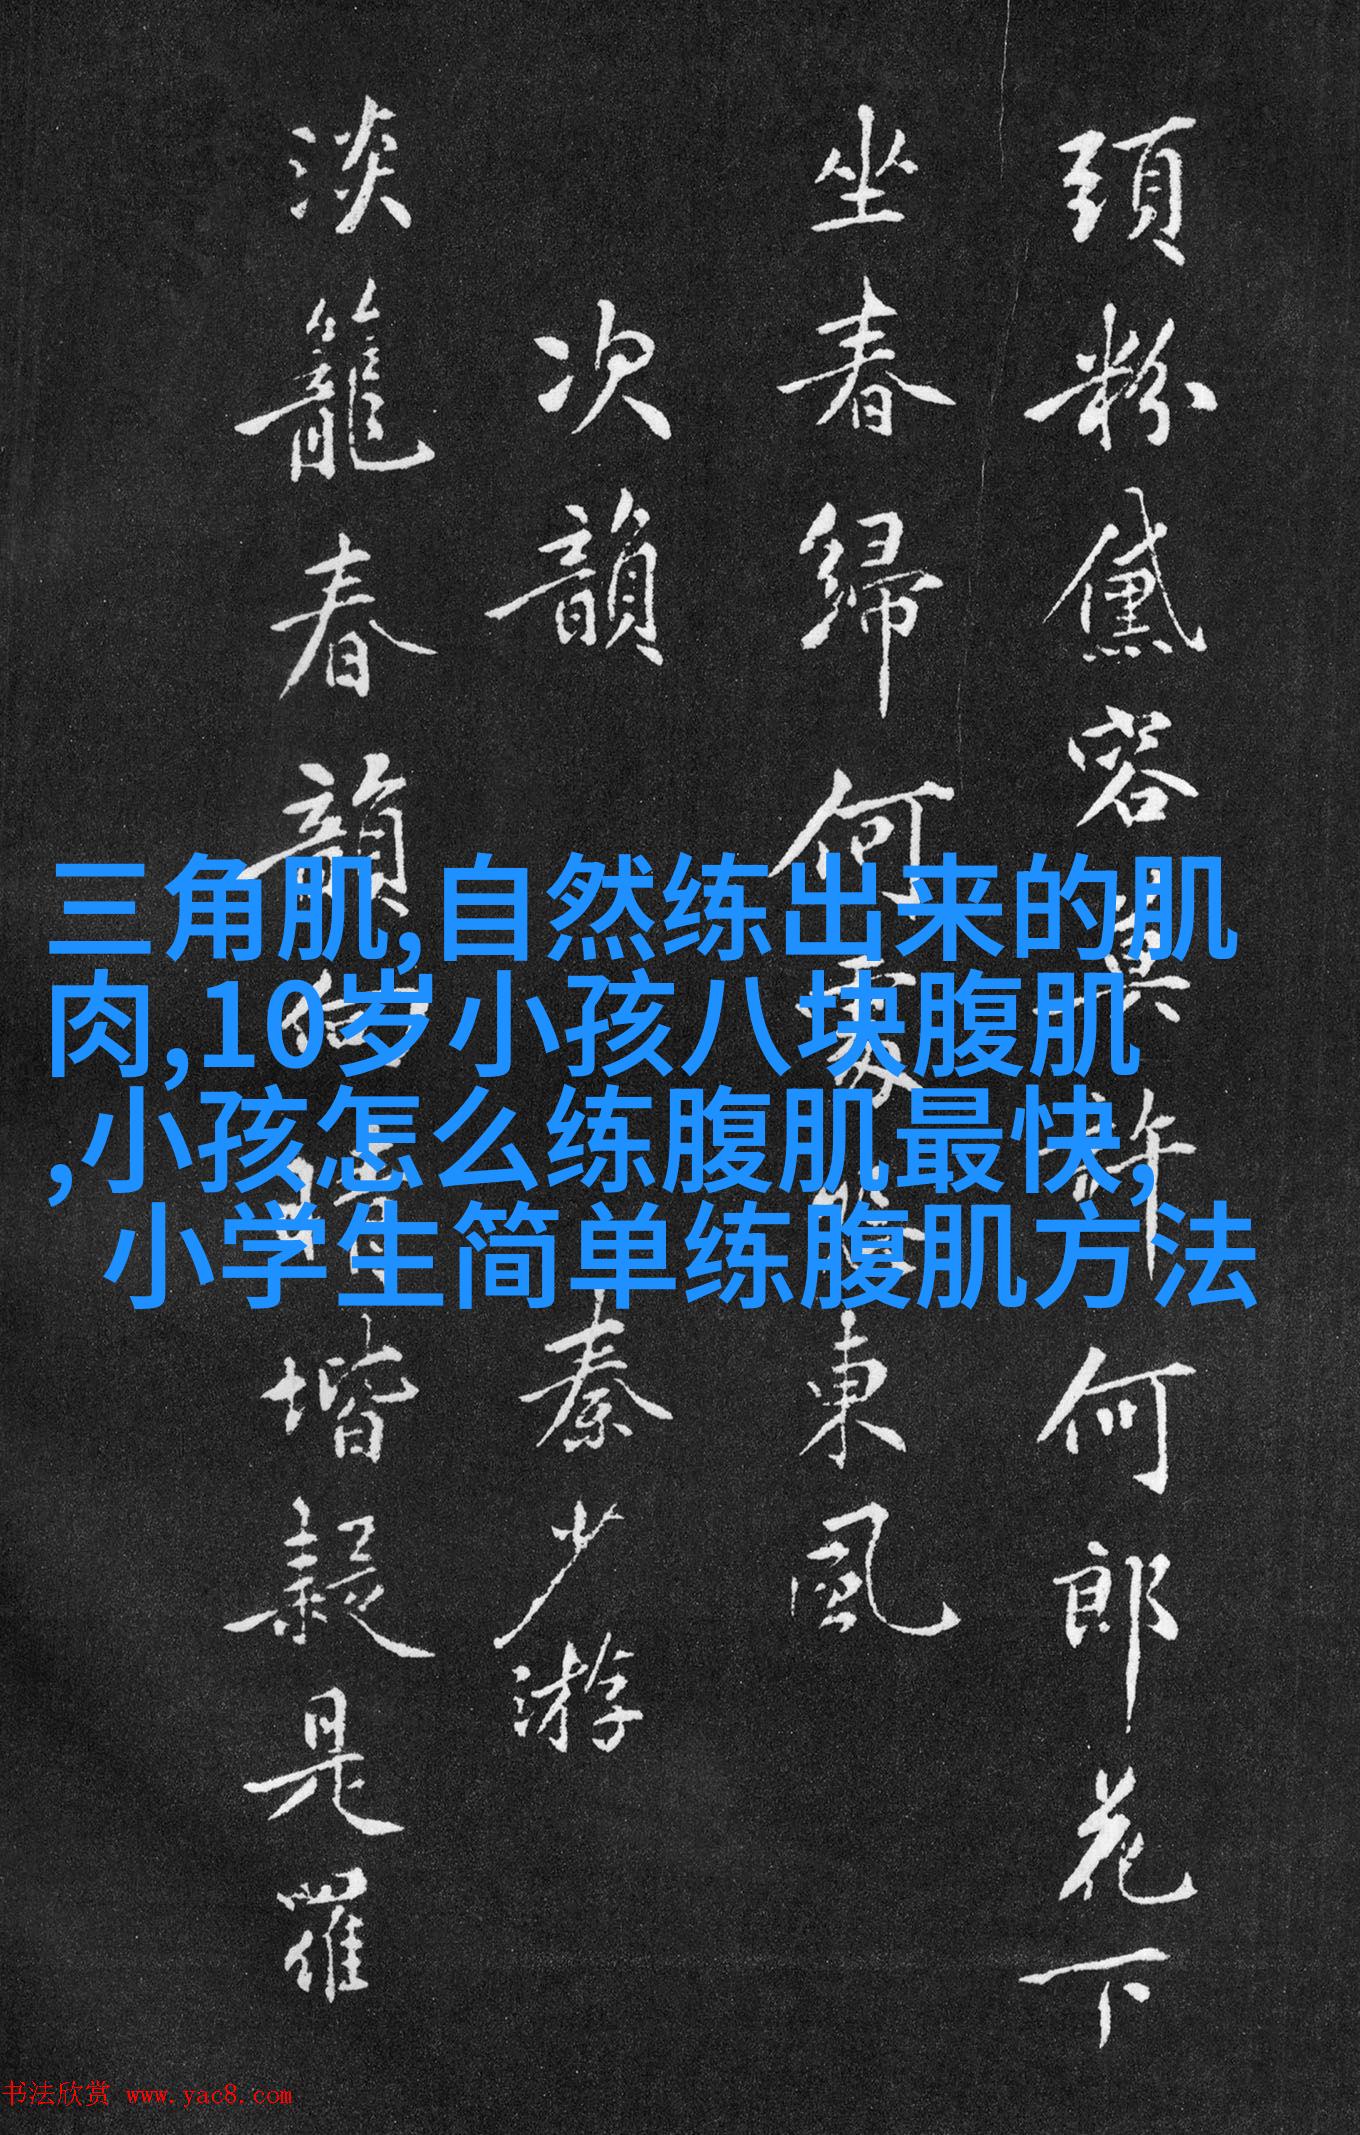 頭粉黛容莫許何郎花下
坐春歸何處 東風
次韻 秦少游
淡籠春韻 堦疑是羅
三角肌,自然练出来的肌
肉,10岁小孩八块腹肌
,小孩怎么练腹肌最快,
小学生简单练腹肌方法
书法欣赏 www.yac8.com